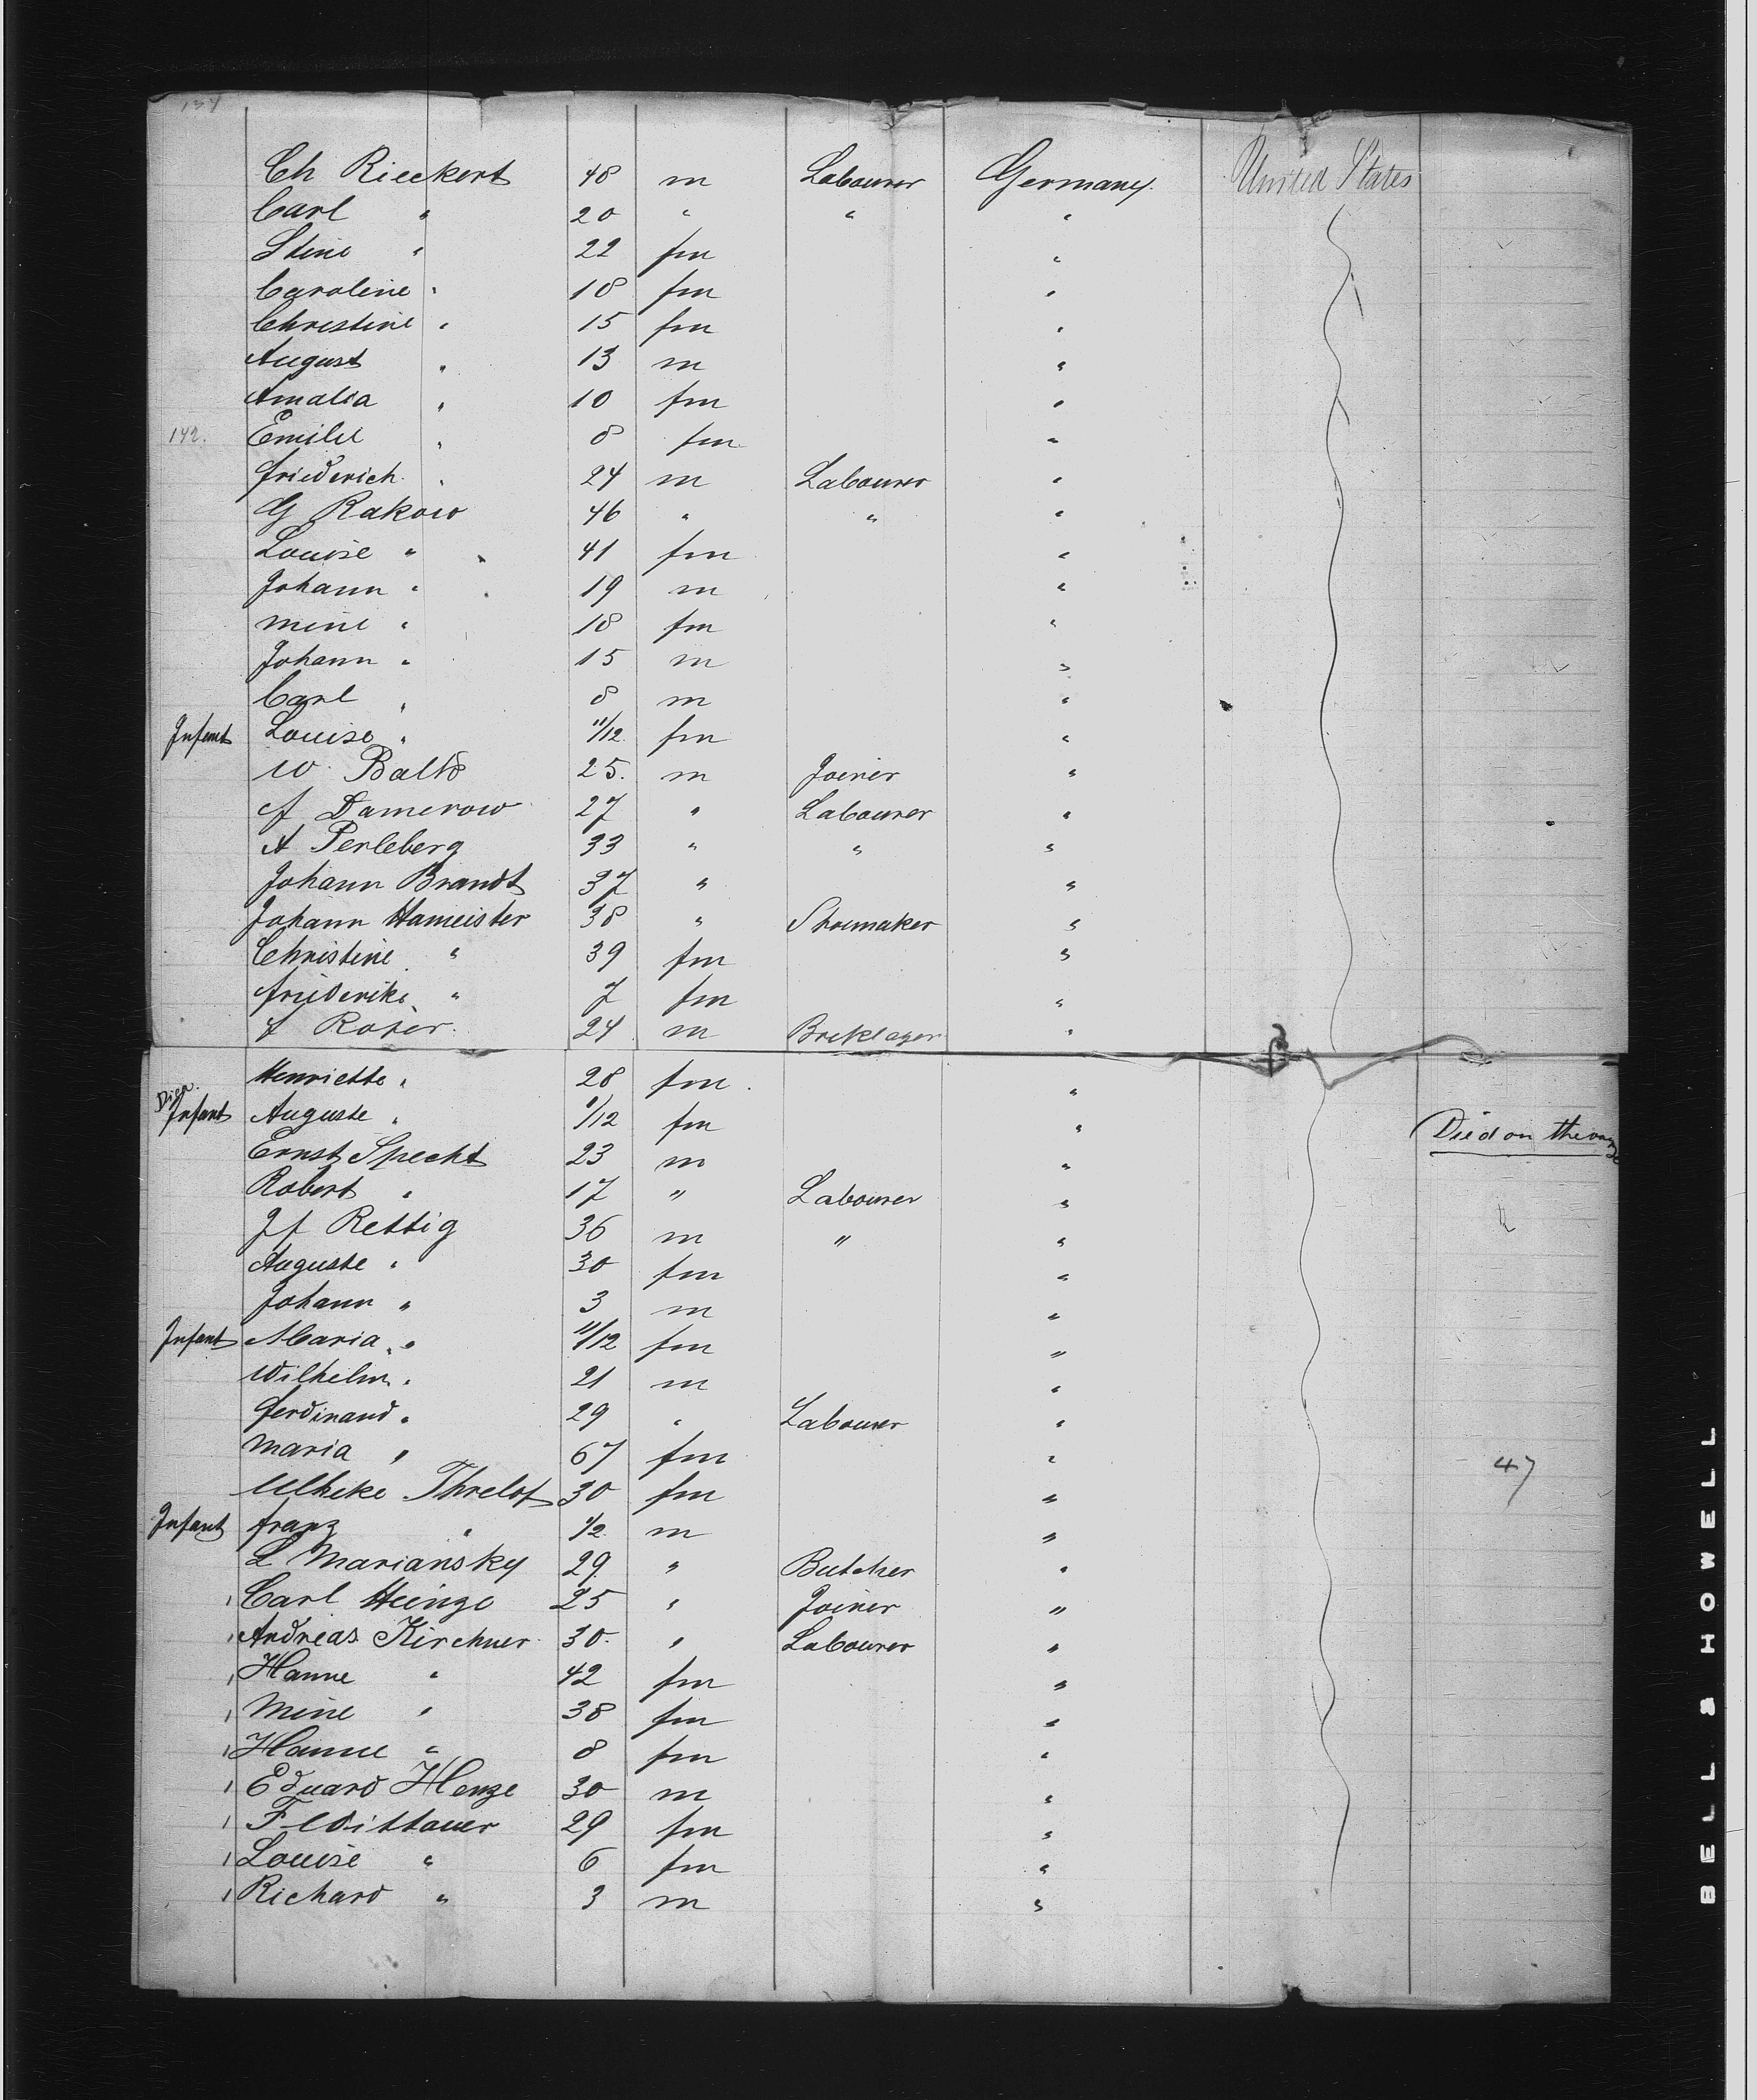 Ch Rieckert 48 m Labourer Germany. United States
Carl " 20 " " "
Stine " 22 fm "
Caroline " 18 fm "
Christine " 15 fm "
August " 13 m "
Amalia " 10 fm "
142. Emilie " 8 fm "
Friederich " 24 m Labourer "
G Rakow 46 " " "
Louise " 41 fm "
Johann " 19 m "
Mine " 18 fm "
Johann " 15 m "
Carl " 8 m "
Infant Louise " 11/12 fm "
W. 25. m Joiner "
F Damerow 27 " Labourer "
A Perleberg 33 " " "
Johann Brandt 37 " "
Johann Hameister 38 " Shoemaker "
Christine " 39 fm "
Friederike " 7 fm "
24 m Breklayer "
Henriette " 28 fm "
Infant Auguste " /12 fm " Died on the
Ernst Specht 23 m "
Robert " 17 " Labourer "
J F Rettig 36 m " "
Auguste " 30 fm "
Johann " 3 m "
Infant Maria " 11/12 fm "
Wilhelm " 21 m "
Ferdinand " 29 " Labourer "
Maria " 67 fm " 47
30 fm "
Infant Franz " 1/2 m "
L Mariansky 29 " Butcher "
Carl Heinze 25 " Joiner "
Andreas Kirchner 30. " Labourer "
Hanne " 42 fm "
Mine " 38 fm "
Hanne " 8 fm "
Eduard Henze 30 m "
F Wittauer 29 fm "
Louise " 6 fm "
Richard " 3 m "
BELL & HOWELL